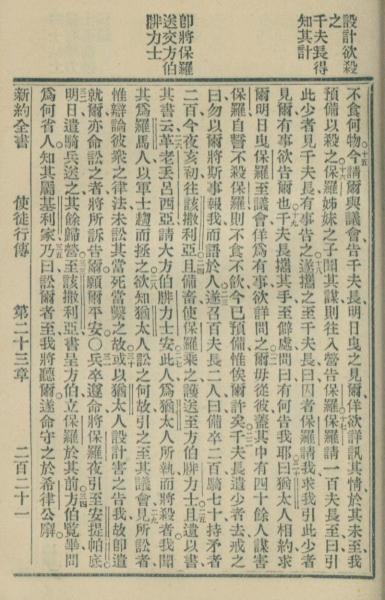 設計欲殺
之
千夫長得
知其計
卽將保羅
送交方伯
腓力士
不食何物今請爾與議會告千夫長明日曳之見爾佯欲詳訊其情於其未至我
預備以殺之保羅姊妹之子聞其謀則往入營告保羅保羅請一百夫長至曰引
此少者見千夫長有事告之遂攜之至千夫長曰囚者保羅請我求我引此少者
見爾有事欲告爾也千夫長攜其手至僻處問曰有何告我耶曰猶太人相約求
爾明日曳保羅至議會佯爲有事欲詳問之爾毋從彼蓋其中有四十餘人謀害
保羅自誓不殺保羅則不食不飲今已預備惟俟爾許矣千夫長遣少者去戒之
曰勿以爾將斯事報我而語於人遂召百夫長二人曰備卒二百騎七十持矛者
二百今夜亥初往該撒利亞且備畜使保羅乘之護送至方伯腓力士且遺以書
其書云革老丟呂西亞請大方伯腓力士安此人爲猶太人所執而將殺者我聞
其爲羅馬人以軍士趨而拯之欲知猶太人訟之何故引之至其議會見所訟者
惟辯論彼衆之律法未訟其當死當縶之故或以猶太人設計害之告我故卽遣
就爾亦命訟之者將所訴告爾願爾平安〇兵卒遵命將保羅夜引至安提帕底
明日遣騎兵送之其餘歸營至該撒利亞書呈方伯立保羅於其前方伯覽畢問
爲何省人知其屬基利家乃曰訟爾者至我將聽爾遂命守之於希律公廨
新約全書 使徒行傳 第二十三章 二百二十一